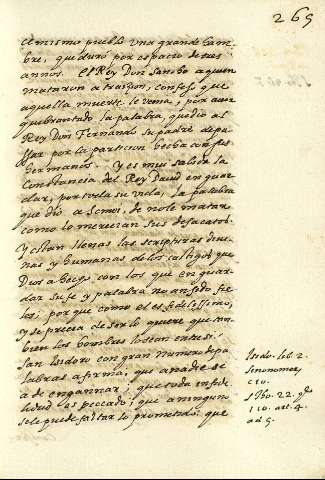 265
el mismo pueblo una grande ham-
bre, que duró por espacio de tres
annos. El Rey Don Sancho a quien
mataron a traizion, confesó que
aquella muerte le venia, por aver
quebrantado la palabra, que dio al
Rey Don Fernando su padre de pa-
ssar por la particion hecha con sus
hermanos. Y es mui sabida la
Constancia del Rey David en guar-
dar, por toda su vida, la palabra
que dió a Semei, de no le matar
como lo merecian sus desacatos.
Y estan llenas las scripturas divi-
nas y humanas de los castigos que
Dios a hecho con los que en guar-
dar su fe y palabra no an sido fie-
les; por que como el es fidelissimo,
y se precia de serlo quiere que tam-
bien los hombres lo sean entre si.
San Isidoro con gran numero de pa-
labras afirma, que a nadie se
a de engannar; que toda infide-
lidad es peccado; que a ninguno
se le puede faltar lo prometido: que
Isido. lib. 2.
Sinonomor,
c 10.
S Tho. 22. q.
110. art. 4.
ad 5.